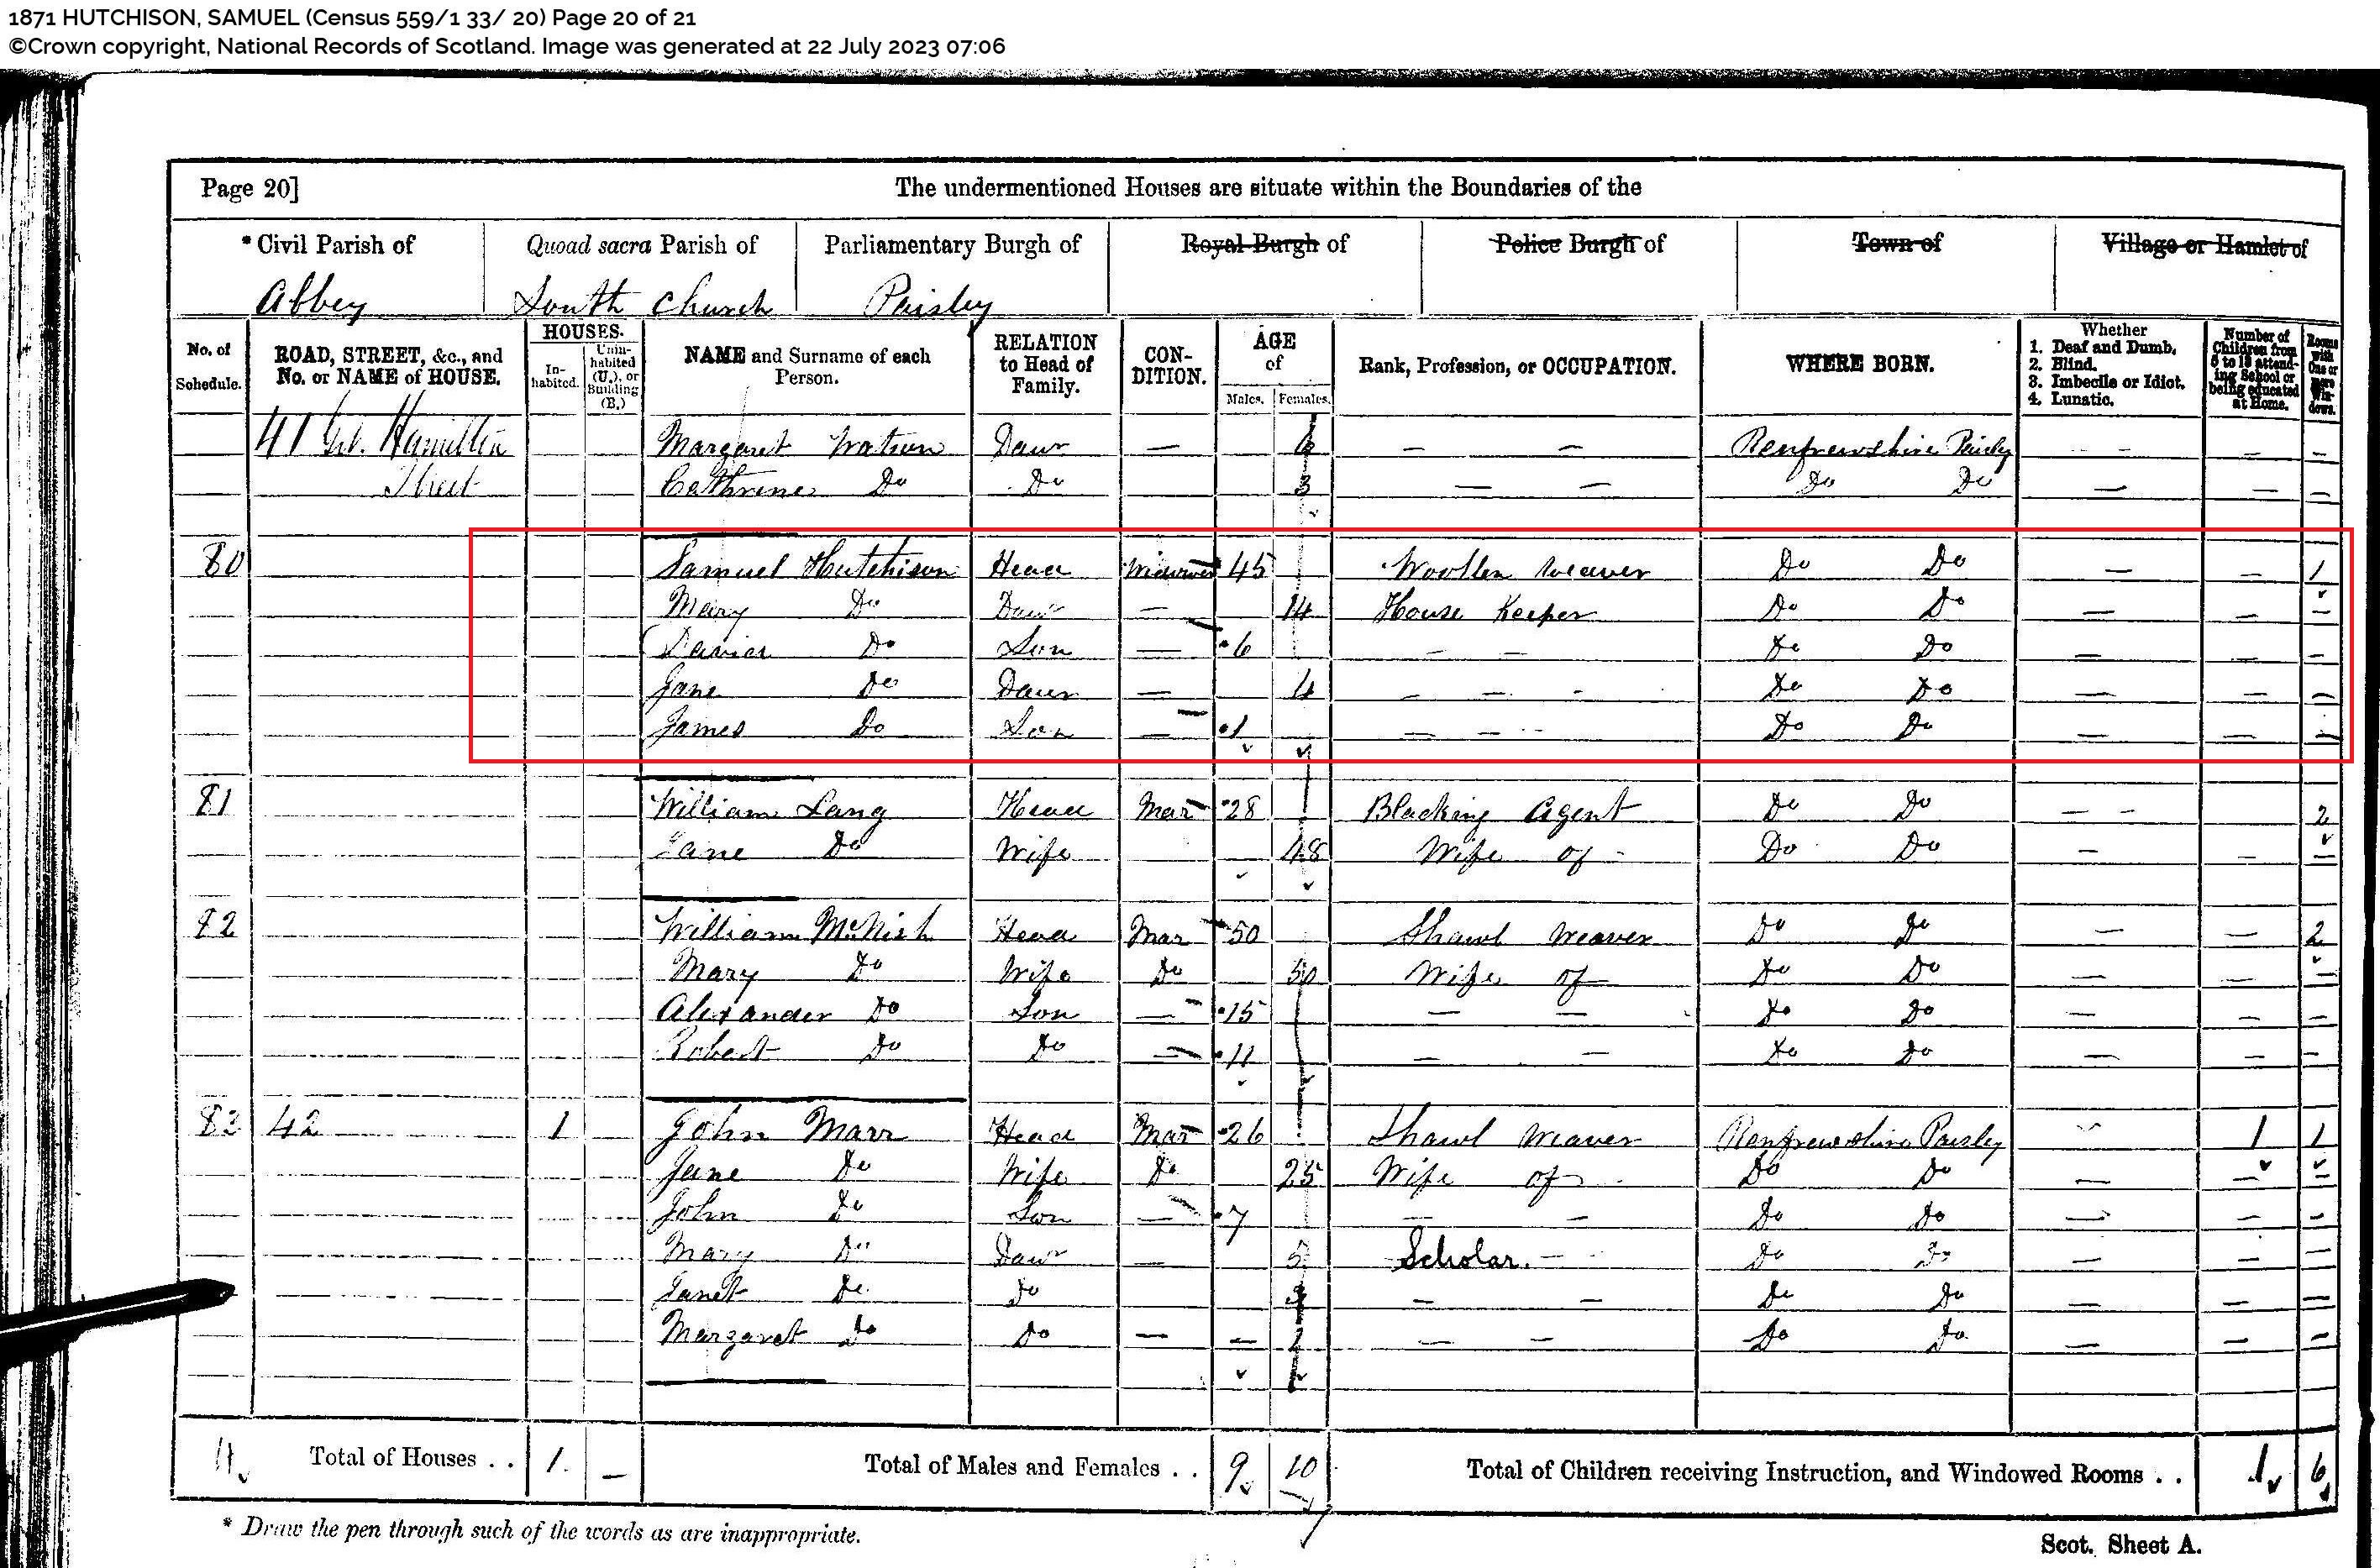 1871 HUTCHISON, SAMUEL (Census 559/1 33/ 20) Page 20 of 21
©Crown copyright, National Records of Scotland. Image was generated at 22 July 2023 07:06
Page 20] The undermentioned Houses are situate within the Boundaries of the
* Civil Parish of Quoad sacra Parish of Parliamentary Burgh of Royal Burgh of Police Burgh of Town of Village or Hamlet of
Abbey South Church Paisley
No. of Schedule. ROAD, STREET, &c., and No. or NAME of HOUSE. HOUSES. In-habited. Unin-habited (U.), or Building (B.) NAME and Surname of each Person. RELATION to Head of Family. CON-DITION. AGE of Males. Females. Rank, Profession, or OCCUPATION. WHERE BORN. Whether 1. Deaf and Dumb. 2. Blind. 3. Imbecile or Idiot. 4. Lunatic. Number of Children from 5 to 13 attending School or being educated at Home. Rooms with One or more Windows.
41 Hamilton Margaret Watson Daur — 6 — — Renfrewshire Paisley — — — —
Street Cathrine Do Do 3 — — Do Do — — —
80 Samuel Hutchison Head Widower 45 Woollen Weaver Do Do — — 1
Mary Do Daur — 14 House Keeper Do Do — — —
David Do Son — 6 — — Do Do — — —
Jane Do Daur — 4 — — - Do Do — — —
James Do Son — 1 — — Do Do — — —
81 William Lang Head Mar 28 Blacking Agent Do Do — — 2
Jane Do Wife 48 Wife of - Do Do — — —
82 William McNish Head Mar 50 Shawl Weaver Do Do — — 2
Mary Do Wife Do 50 Wife of Do Do — — —
Alexander Do Son — 15 — — Do Do — — —
Robert Do Do — 11 — — Do Do — — —
83 42 1 John Marr Head Mar 26 Shawl Weaver Renfrewshire Paisley 1 1
Jane Do Wife Do 25 Wife of Do Do — — —
John Do Son — 7 — — Do Do — — —
Mary Do Daur — 5 Scholar. — Do Do — — —
Janet Do Do 3 — — Do Do — — —
Margaret Do Do — — — — Do Do — — —
Total of Houses . . 1. — Total of Males and Females . . 9 10 Total of Children receiving Instruction, and Windowed Rooms . . 1 6
* Draw the pen through such of the words as are inappropriate.
Scot. Sheet A.